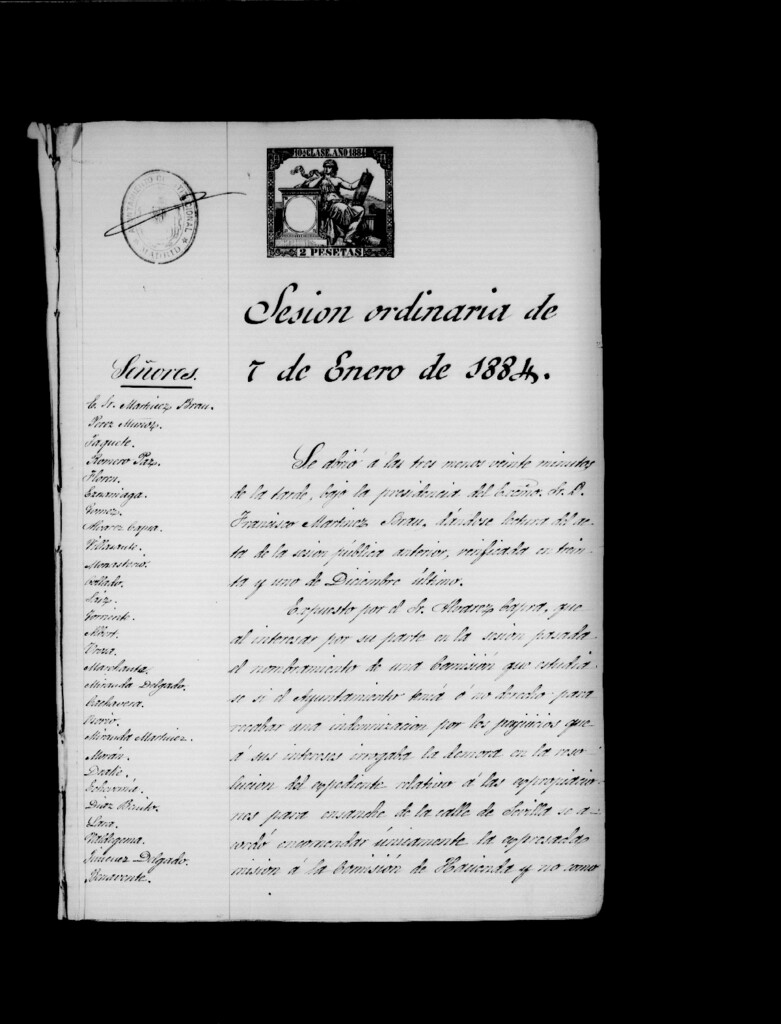 10ª CLASE. AÑO 1884
2 PESETAS
AYUNTAMIENTO CONSTITUCIONAL
MADRID
Sesion ordinaria de
7 de Enero de 1884.
Señores.
E. Sr. Martinez Brau.
Perez Muñoz.
Jaquete.
Romero Paz.
Flores.
Gomez.
Alvarez Capra.
Villasante.
Monasterio.
Collado.
Sáiz.
Torriente.
Albert.
Marchante.
Miranda Delgado.
Osorio.
Miranda Martinez.
Morán.
Echevarria.
Diaz Benito.
Lara.
Valdegema.
Jimenez Delgado.
Benavente.
Se abrió á las tres menos veinte minutos
de la tarde, bajo la presidencia del Excmo. Sr. D.
Francisco Martinez Brau, dándose lectura del ac-
ta de la sesion pública anterior, verificada en trein-
ta y uno de Diciembre último.
Expuesto por el Sr. Alvarez Capra, que
al interesar por su parte en la sesion pasada
el nombramiento de una Comisión que estudia-
se si el Ayuntamiento tenía ó no derecho para
recabar una indemnizacion por los perjuicios que
á sus intereses irrogaba la demora en la reso-
lucion del expediente relativo á las expropiacio-
nes para ensanche de la calle de Sevilla se a-
cordó encomendar únicamente la expresada
mision á la Comisión de Hacienda y no como